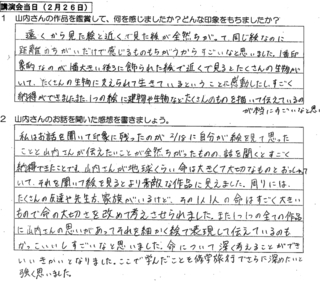 講演会当日（２月２６日）
１ 山内さんの作品を鑑賞して、何を感じましたか？どんな印象をもちましたか？
遠くから見た絵と近くで見た絵が全然ちがって、同じ絵なのに
距離がちがいだけで感じるものもがうからすごいなと思いました。1番印
象的なのが 幡大きい様うに飾られた絵で近くで見るとたくさんの生物がい
て、たくさんの生物に支えられて生きているということに感動したしすごく
納得ができました。また、1つの絵に建物や生物などたくさんのものを描いて伝えているの
が本当にすごいなと思い
２ 山内さんのお話を聞いた感想を書きましょう。
私はお話を聞いて印象に残ったのが 2/18に自分が絵を見て思った
ことと山内さんが伝えたいことが全然ちがったものの、お話を聞くとすごく
納得できたことです。山内さんが地球くらい命は大きくて大切なものとおっしゃって
いて、それを聞いて絵を見るとより素敵な作品に見えました。周りには、
たくさんの友達や先生方、家族がいるけど、その1人1人の命はすごく大きい
もので命の大切さを改めて考えさせられました。また1つ1つの全ての作品
に山内さんの思いがあってそれを細かく絵で表現して伝えているのも
かっこいいしすごいなと思いました。命について深く考えることができ
いいきかいとなりました。ここで学んだことを修学旅行でさらに深めたいと
強く思いました。